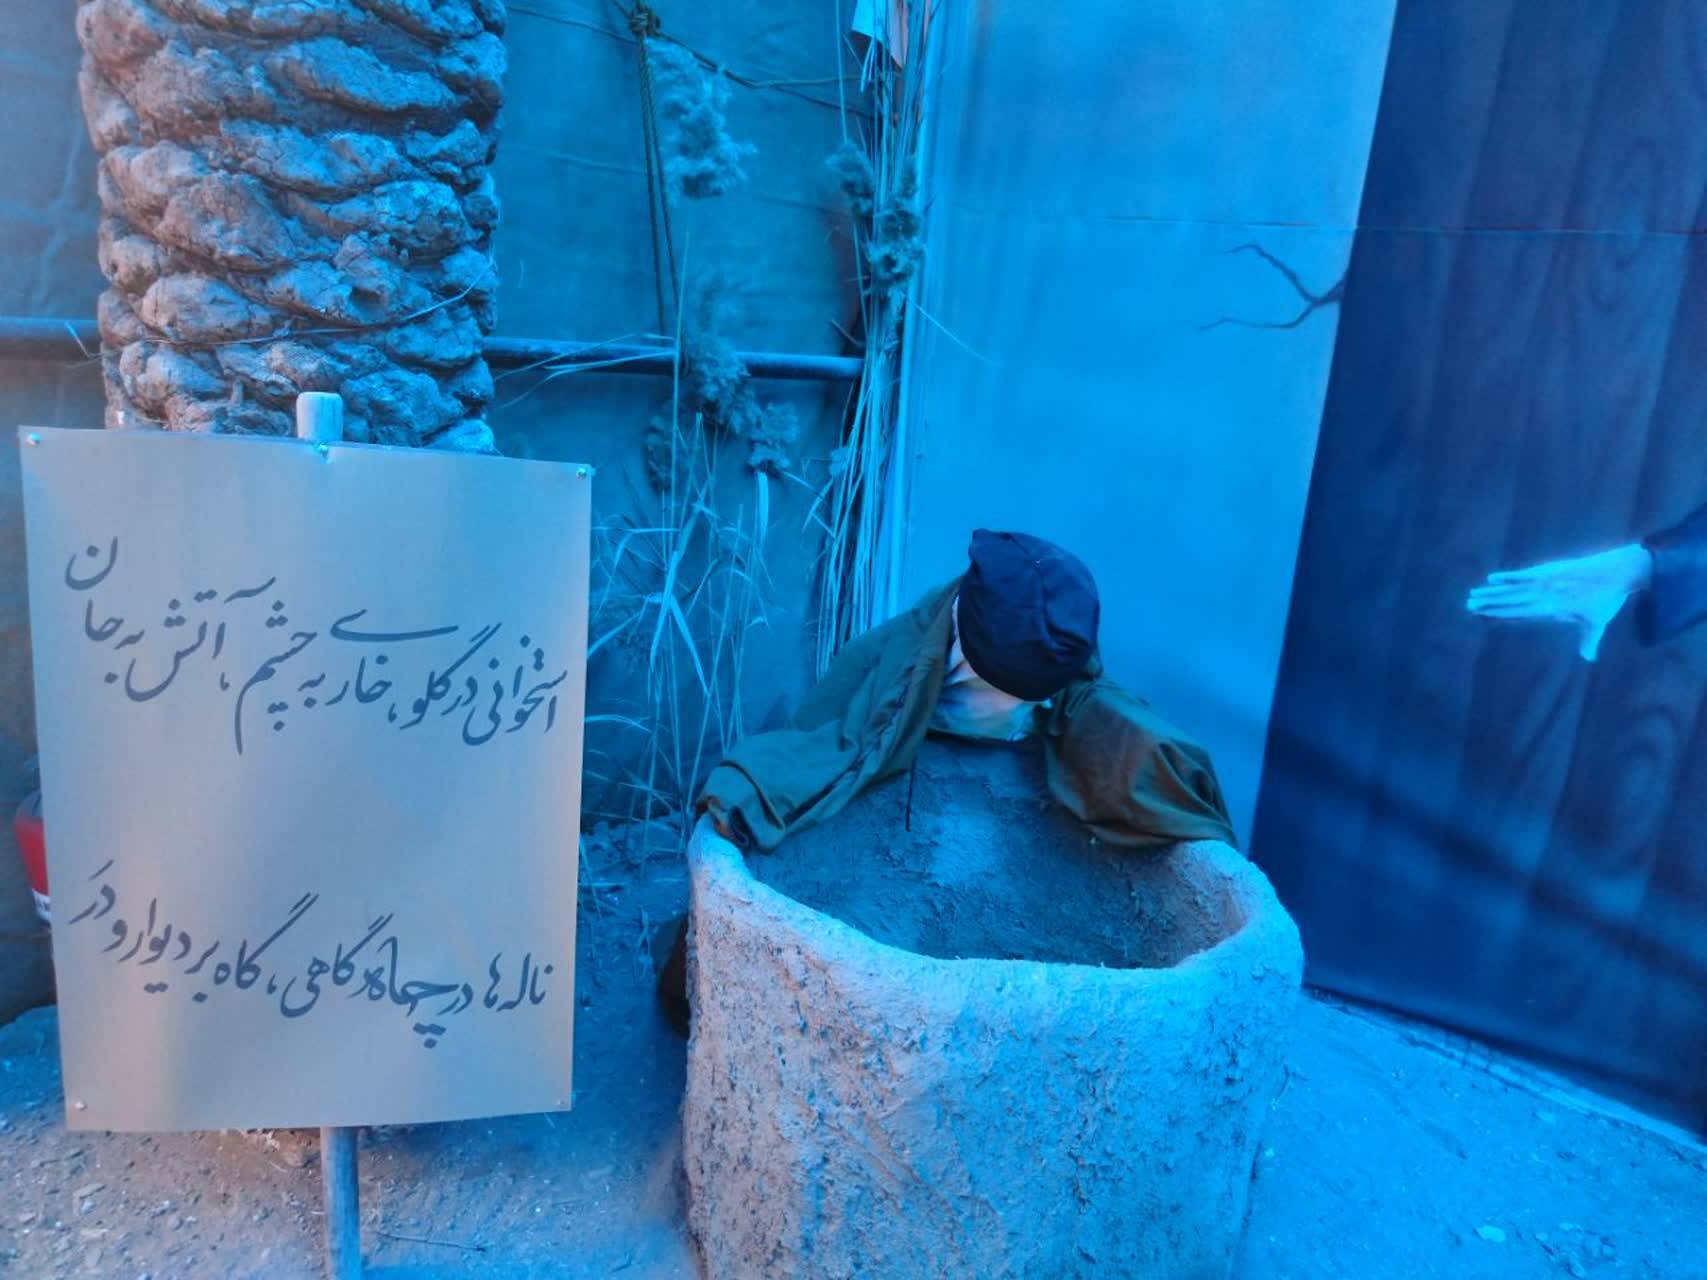 استخوانی در گلو، خاری به چشم، آتش به جان
ناله‌ها در چاه گاهی، گاه بر دیوار و دَر